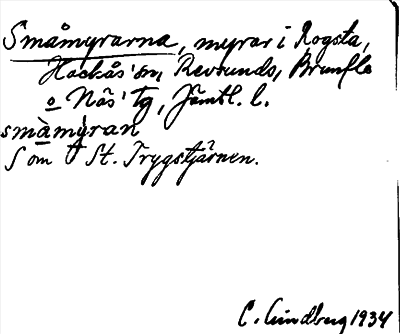 Småmyrarna, myrar i Rogsta,
Hackås' sn, Revsunds, Brunflo
o Näs' tg, Jämtl. l.
småmyran
S om St. Trygstjärnen.
C. Lindberg 1934